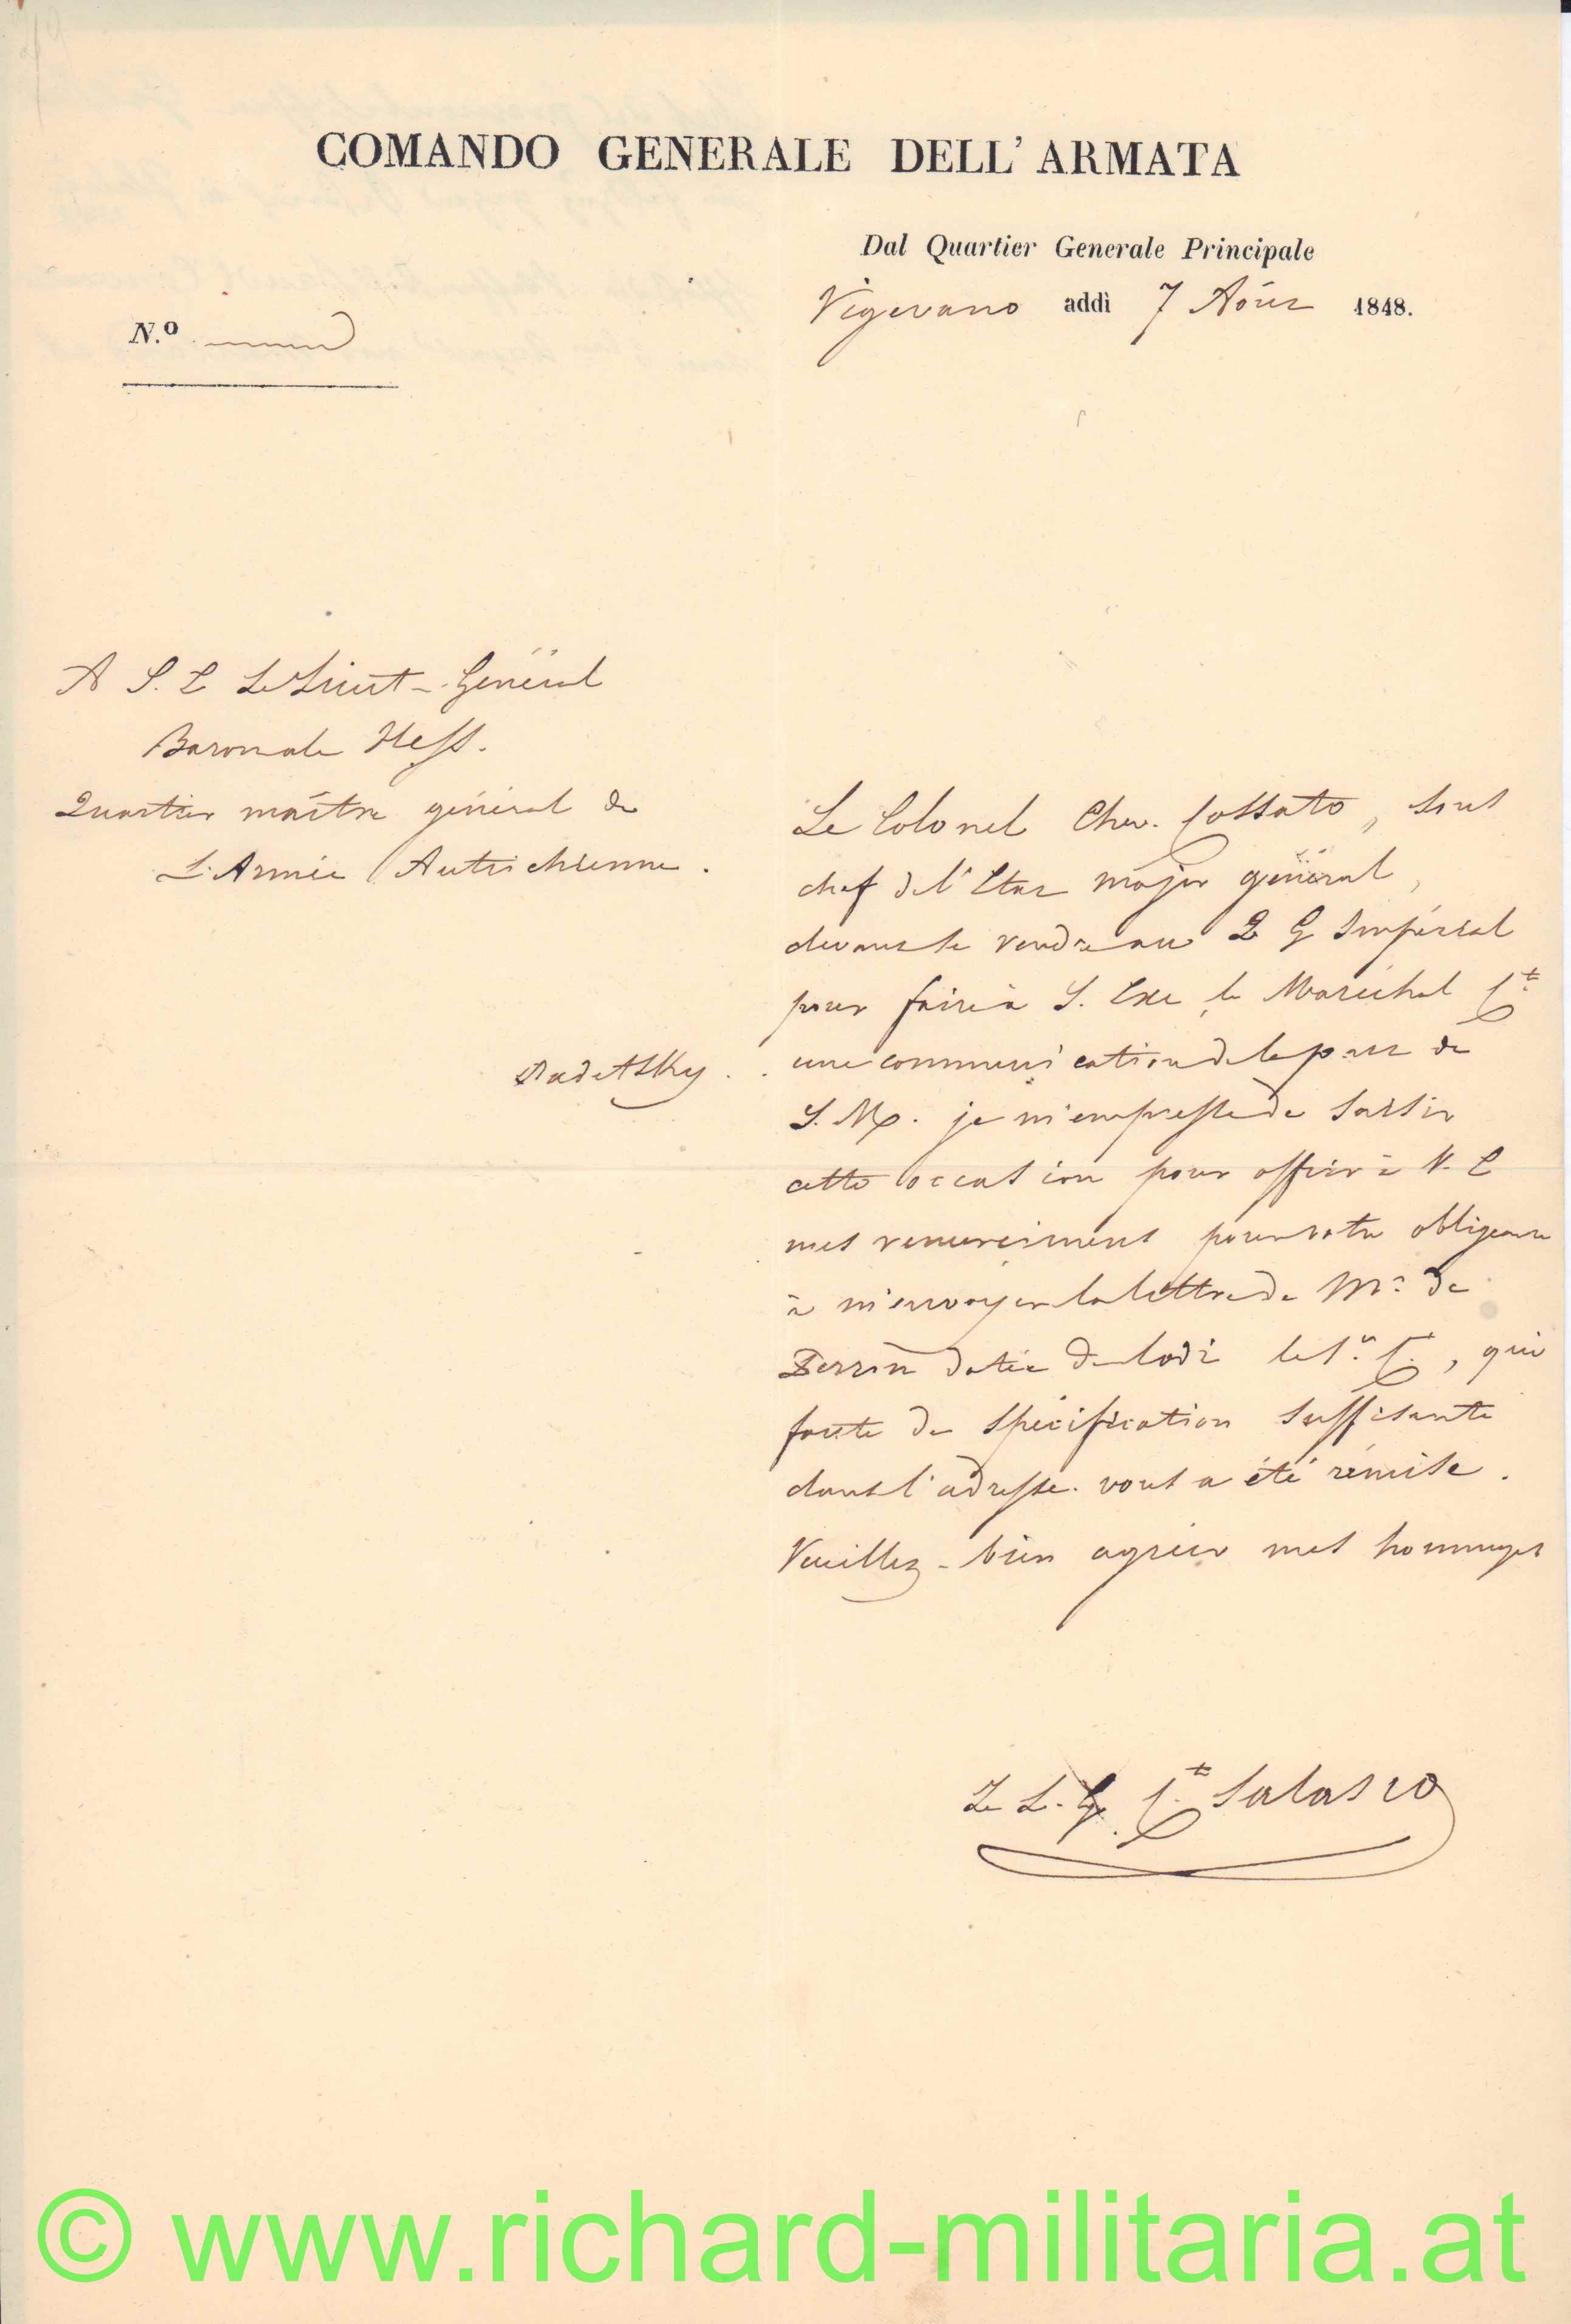 COMANDO GENERALE DELL' ARMATA
Dal Quartier Generale Principale
Vigevano addì 7 Aôut 1848.
N.º
A S. E Le Lieut - Général
Baron de Hess.
Quartier maître général de
L'Armée Autrichienne.
Le Colonel Chev. Cossato, sous
chef de l'Etat major général,
devant se rendre au Q G Impérial
pour faire à S. Exe le Maréchal C.te
Radetsky . . une communication de la part de
S. M. je m'empresse de saisir
cette occasion pour offrir à V. E
mes remerciments pour votre obligeance
à m'envoyer la lettre de Mr. de
Perrin datée de Lodi le s.r C.t, qui
faute de spécification suffisante
dans l'adresse. vous a été remise.
Veuillez - bien agréer mes hommages
Le L. G. C.te Salasco
© www.richard-militaria.at